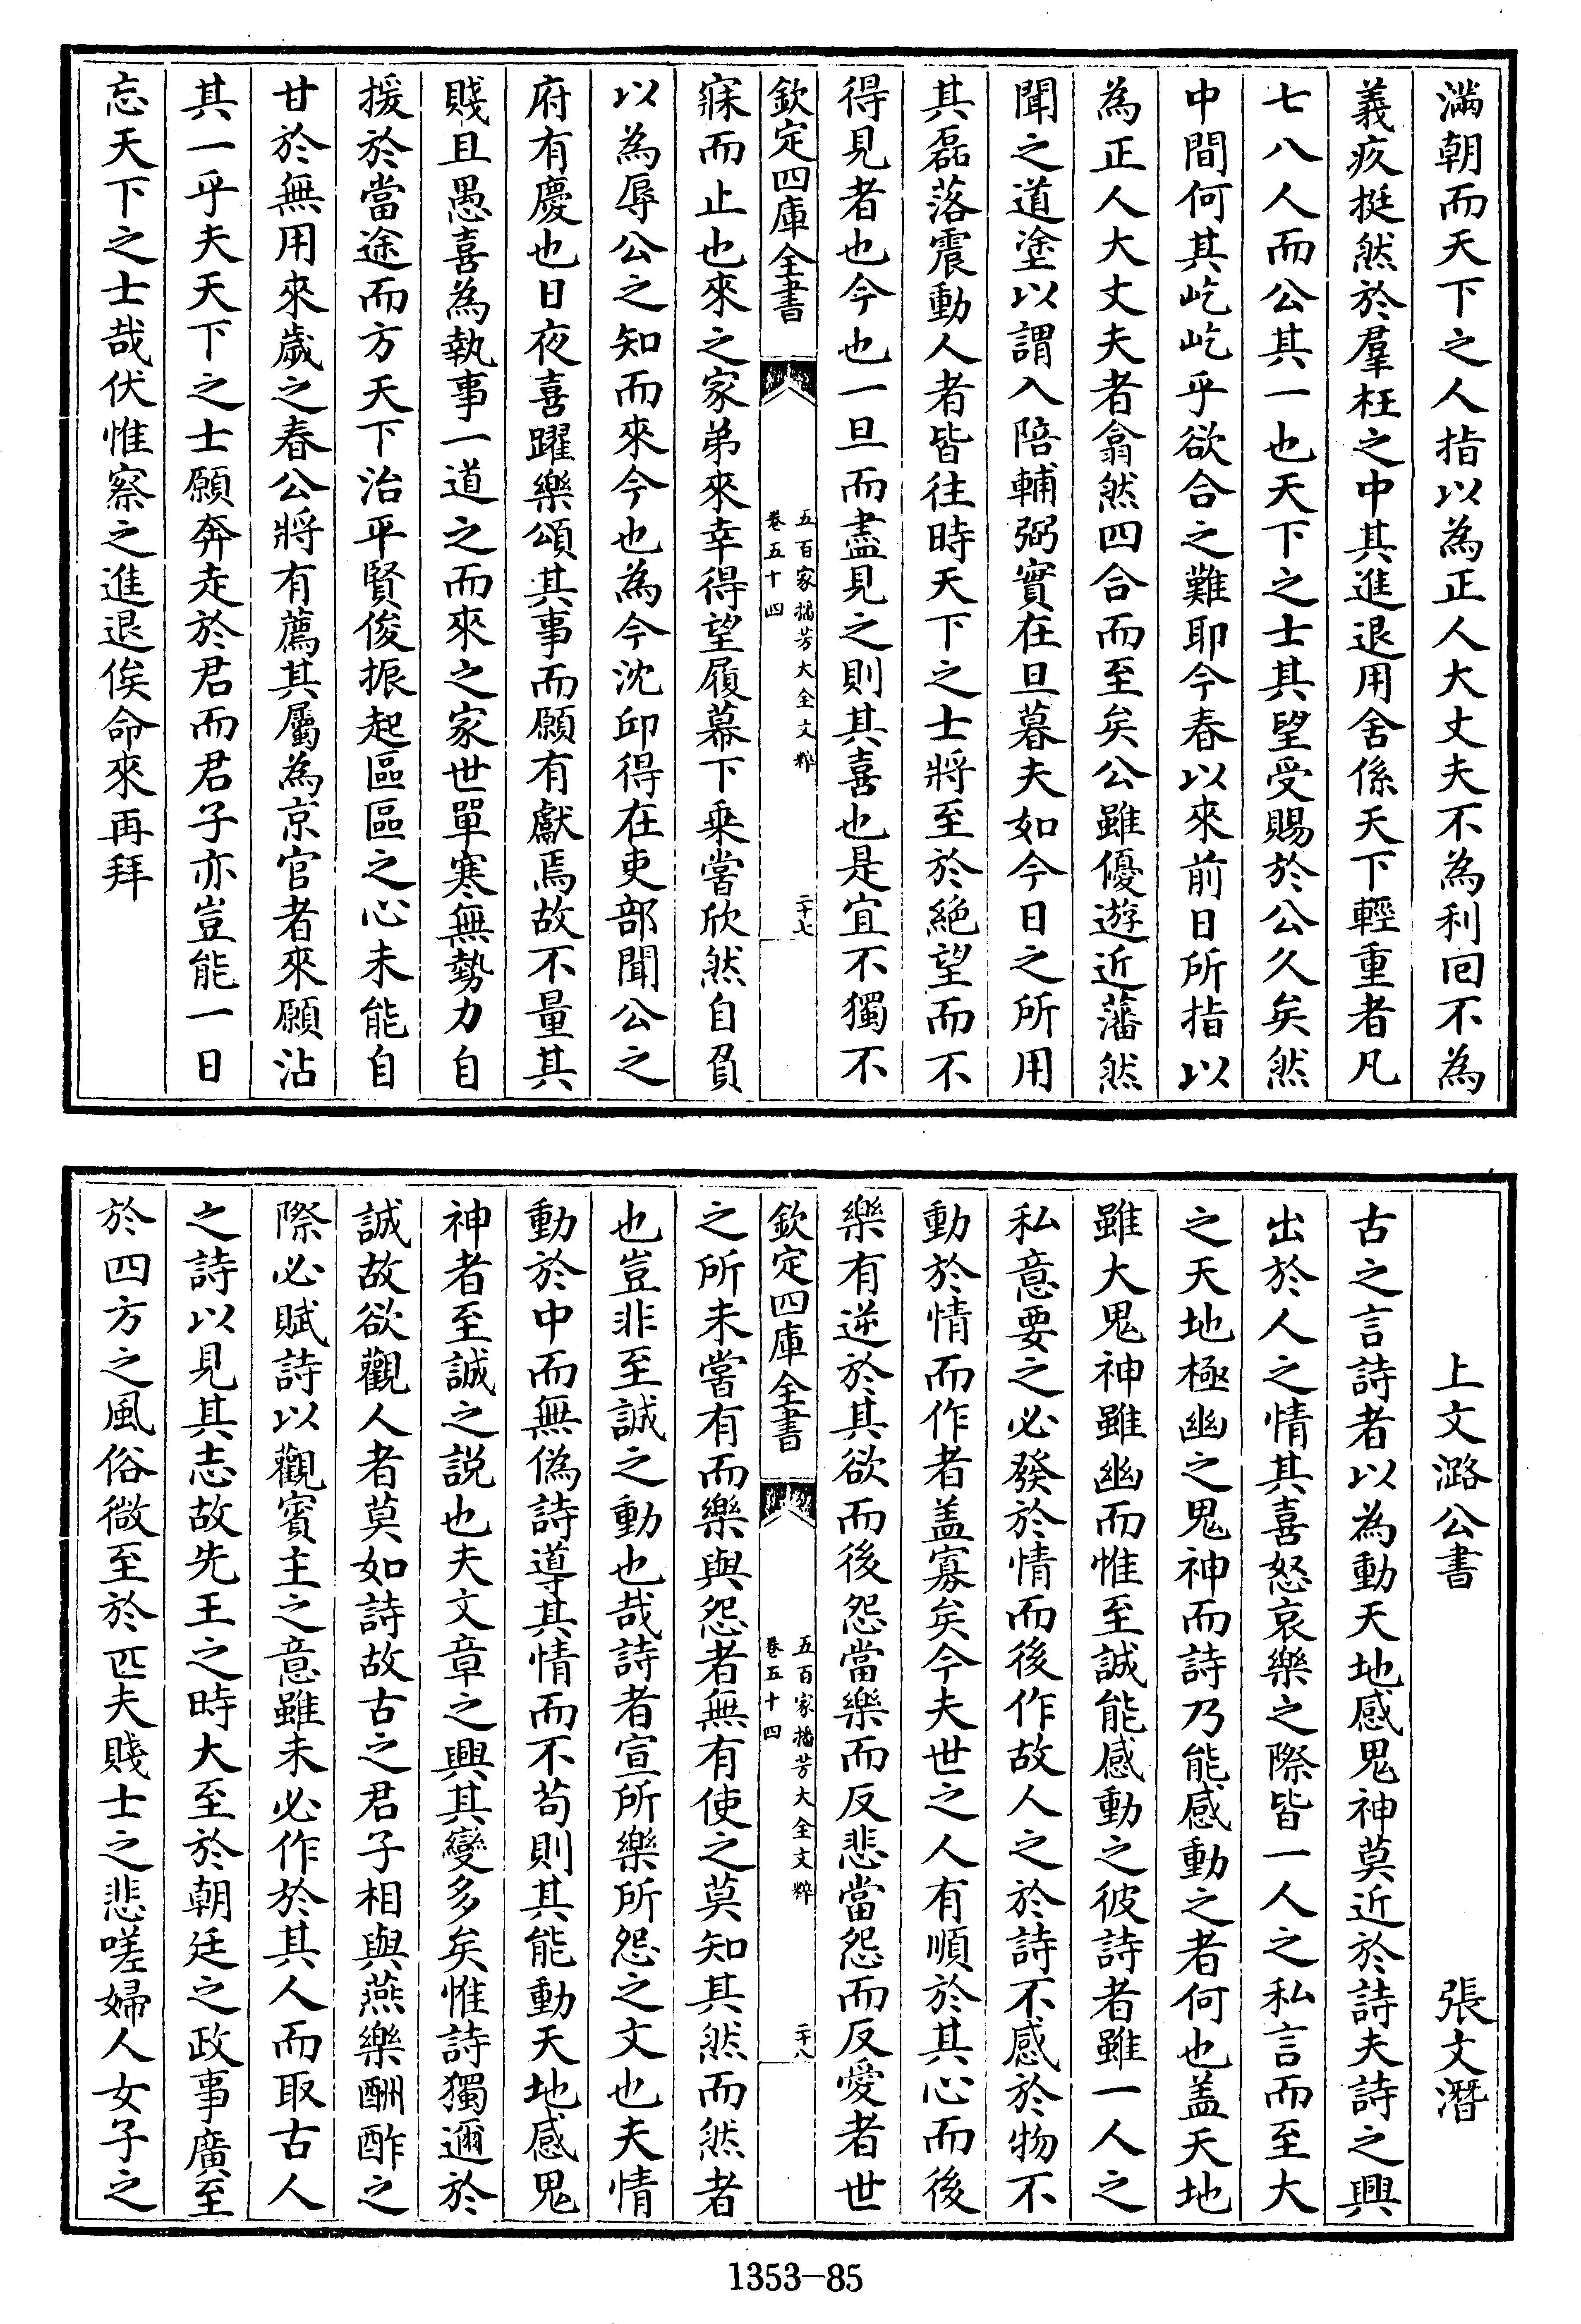 滿朝而天下之人指以為正人大丈夫不為利回不為
義疚挺然於羣枉之中其進退用舍係天下輕重者凡
七八人而公其一也天下之士其望受賜於公久矣然
中間何其屹屹乎欲合之難耶今春以來前日所指以
為正人大丈夫者翕然四合而至矣公雖優遊近藩然
聞之道塗以謂入陪輔弼實在旦暮夫如今日之所用
其磊落震動人者皆往時天下之士將至於絶望而不
得見者也今也一旦而盡見之則其喜也是宜不獨不
欽定四庫全書
五百家播芳大全文粹
卷五十四
二十七
寐而止也來之家弟來幸得望履幕下乗嘗欣然自負
以為辱公之知而來今也為今沈邱得在吏部聞公之
府有慶也日夜喜躍樂頌其事而願有獻焉故不量其
賤且愚喜為執事一道之而來之家世單寒無勢力自
援於當途而方天下治平賢俊振起區區之心未能自
甘於無用來歲之春公將有薦其屬為京官者來願沾
其一乎夫天下之士願奔走於君而君子亦豈能一日
忘天下之士哉伏惟察之進退俟命來再拜
上文潞公書 張文潛
古之言詩者以為動天地感鬼神莫近於詩夫詩之興
出於人之情其喜怒哀樂之際皆一人之私言而至大
之天地極幽之鬼神而詩乃能感動之者何也盖天地
雖大鬼神雖幽而惟至誠能感動之彼詩者雖一人之
私意要之必發於情而後作故人之於詩不感於物不
動於情而作者盖寡矣今夫世之人有順於其心而後
樂有逆於其欲而後怨當樂而反悲當怨而反愛者世
欽定四庫全書
五百家播芳大全文粹
卷五十四
二十八
之所未嘗有而樂與怨者無有使之莫知其然而然者
也豈非至誠之動也哉詩者宣所樂所怨之文也夫情
動於中而無偽詩導其情而不苟則其能動天地感鬼
神者至誠之説也夫文章之興其變多矣惟詩獨邇於
誠故欲觀人者莫如詩故古之君子相與燕樂酬酢之
際必賦詩以觀賓主之意雖未必作於其人而取古人
之詩以見其志故先王之時大至於朝廷之政事廣至
於四方之風俗微至於匹夫賤士之悲嗟婦人女子之
1353-85